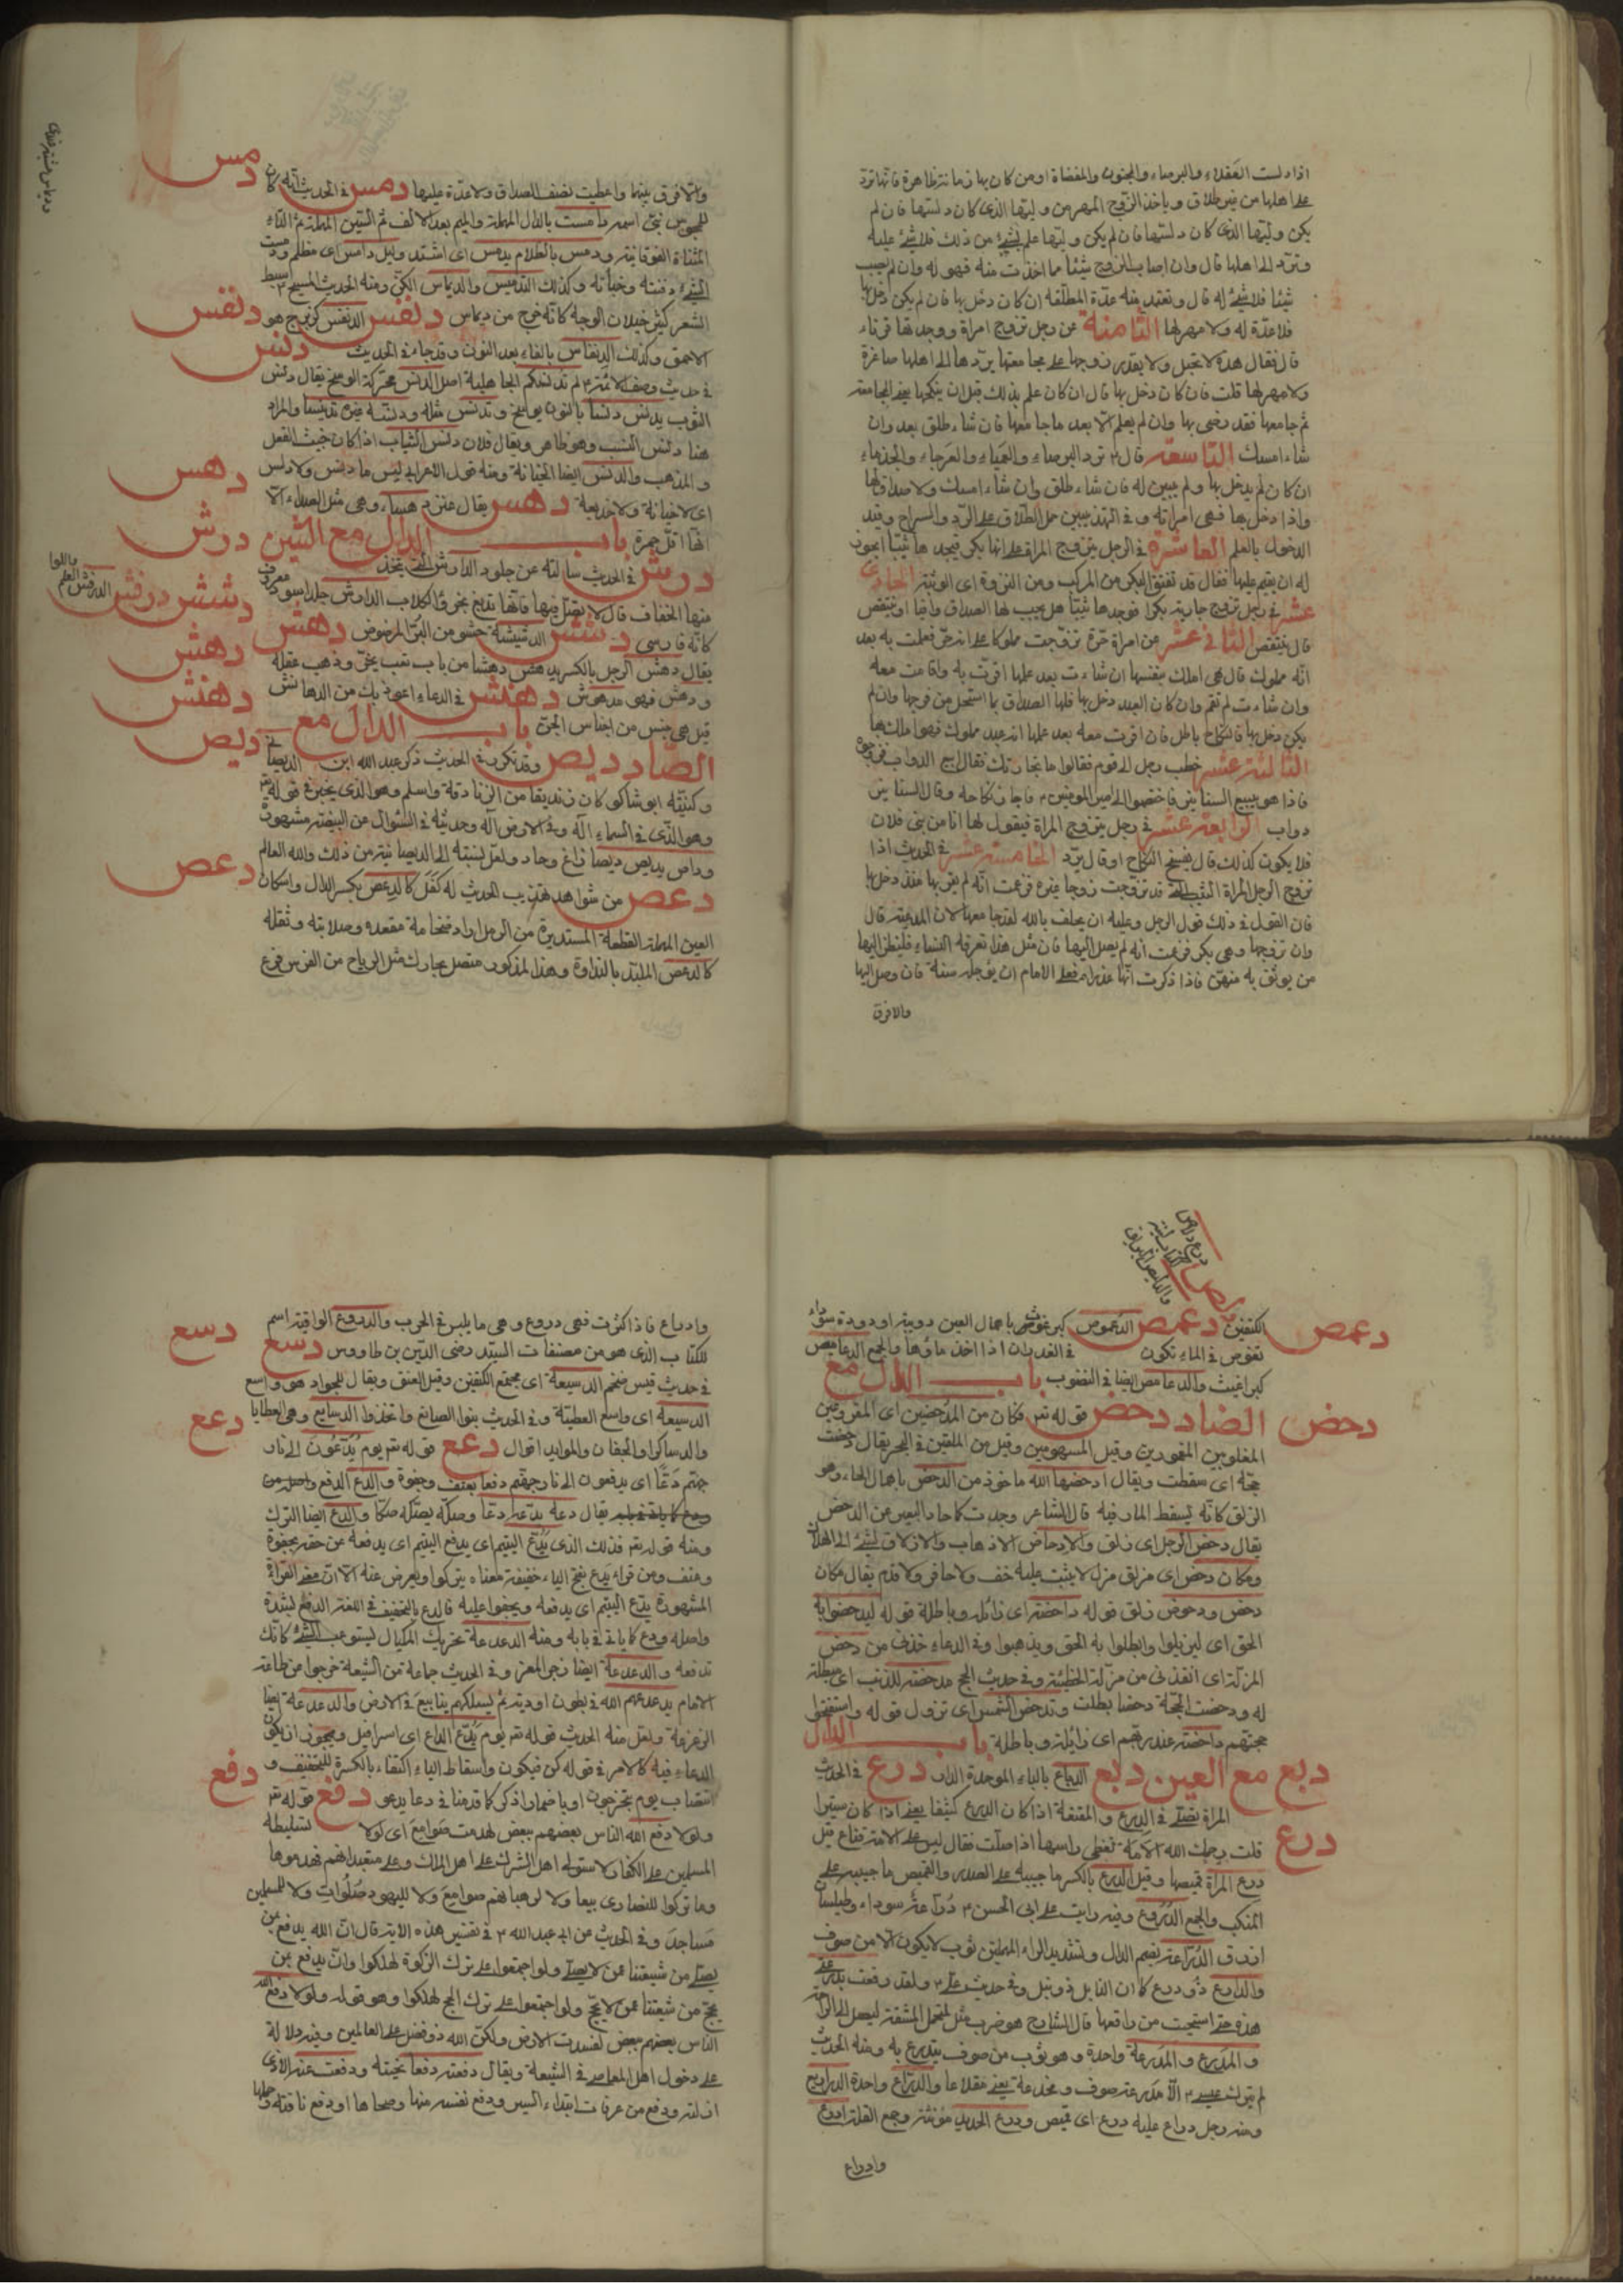 اذا دلست العفلاء والبرصاء والمجنون والمفضاة ومن كان بها زمانة ظاهرة فانها ترد
على اهلها من غير طلاق وياخذ الزوج المهر من وليها الذي كان دلسها فان لم
يكن وليها الذي كان دلسها فان لم يكن وليها علم بشئ من ذلك فلا شئ عليه
وترد الى اهلها قال وان اصاب الزوج شيئا مما اخذت منه فهو له وان لم يصب
شيئا فلا شئ له قال وتعتد منه عدة المطلقة ان كان دخل بها فان لم يكن دخل بها
فلا عدة له ولا مهر لها الثامنة عن رجل تزوج امراة ووجد بها قرناء
قال فقال هذه لا تحبل ولا يقدر زوجها على مجامعتها يردها الى اهلها صاغرة
ولا مهر لها قلت فان كان دخل بها قال ان كان علم بذلك قبل ان ينكحها يعني المجامعة
ثم جامعها فقد رضى بها وان لم يعلم الا بعد ما جامعها فان شاء طلق بعد وان
شاء امسك التاسعة قال ترد البرصاء والعمياء والعرجاء والجذماء
ان كان لم يدخل بها ولم يبين له فان شاء طلق وان شاء امسك ولا صداق لها
واذا دخل بها فهى امراته
الدخول بالعلم العاشرة فى الرجل يتزوج المراة على انها بكر فيجدها ثيبا ايجوز
له ان يقيم عليها فقال قد تفتق البكر من المركب ومن النزوة اى الوثبة الحادى
عشر فى رجل تزوج جارية بكرا فوجدها ثيبا هل يجب لها الصداق وافيا او ينتقص
قال ينتقص الثانى عشر عن امراة حرة تزوجت مملوكا على انه حر فعلمت به بعد
انه مملوك قال هى املك بنفسها ان شاءت بعد علمها اقرت به واقامت معه
وان شاءت لم تقم وان كان العبد دخل بها فلها الصداق بما استحل من فرجها وان لم
يكن دخل بها فالنكاح باطل فان اقرت معه بعد علمها انه عبد مملوك فهو املك بها
الثالثة عشر خطب رجل الى قوم فقالوا ما تجارتك فقال ابيع الدواب فزوجوه
فاذا هو يبيع السنانير فاختصموا الى امير المومنين فاجاز نكاحه وقال السنانير
دواب الرابعة عشر فى رجل يتزوج المراة فيقول لها انا من بنى فلان
فلا يكون كذلك قال يفسخ النكاح او قال يرد الخامسة عشر فى الحديث اذا
تزوج الرجل المراة الثيب التى قد تزوجت زوجا غيره فزعمت انه لم يقربها منذ دخل بها
فان القول فى ذلك قول الرجل وعليه ان يحلف بالله لقد جامعها لانها المدعية قال
وان تزوجها وهى بكر فزعمت انه لم يصل اليها فان مثل هذا تعرفه النساء فلينظر اليها
من يوثق به منهن فاذا ذكرت انها عذراء فعلى الامام ان يؤجله سنة فان وصل اليها
والا فرق
دمس
والا فرق بينهما واعطيت نصف الصداق ولا عدة عليها دمس فى الحديث انه كان
للمجوس نبى اسمه دامست بالدال المهملة والميم بعد الالف ثم السين المهملة ثم التاء
المثناة الفوقانية ودمس بالظلام يدمس اى اشتد وليل دامس اى مظلم ودمست
الشئ دفنته وخبأته وكذلك التدميس والديماس الكن ومنه الحديث المسيح سبط
الشعر كثير خيلان الوجه كانه خرج من ديماس دنفس الدنفس كزبرج هو
دنفس
الاحمق وكذلك الدنفاس بالفاء بعد النون وقد جاء فى الحديث
دنس
فى حديث وصف الائمة لم تدنسكم الجاهلية اصل الدنس محركة الوسخ يقال دنس
الثوب يدنس دنسا بالنون يوسخ وتدنس مثله ودنسه غيره تدنيسا والمراد
هنا دنس النسب وهو ظاهر ويقال فلان دنس الثياب اذا كان خبيث الفعل
والمذهب والدنس ايضا الخيانة ومنه قول الاعرابى ليس ما دنس ولا دلس
اى لا خيانة ولا خديعة دهس يقال عنز دهساء وهى مثل الصداء الا
دهس
انها اقل حمرة باب الدال مع الشين
درش
درش فى الحديث سالته عن جلود الدارش التى يتخذ
منها الخفاف قال لا تصل فيها فانها تدبغ بخرؤ الكلاب الدارش جلد اسود معروف
كانه فارسى دشش الدشيشة حشو من البر المرضوض دهش
دشش درفش
يقال دهش الرجل بالكسر يدهش دهشا من باب تعب تحير وذهب عقله
دهش
ودهش فهو مدهوش دهنش فى الدعاء اعوذ بك من الدهانش
دهنش
قيل هى جنس من اجناس الجن باب الدال مع
الصاد ديص وقد تكرر فى الحديث ذكر عبد الله ابن الديصانى
ديص
وكنيته ابو شاكر كان زنديقا من الزنادقة واسلم وهو الذى تحير فى قوله تع
وهو الذى فى السماء اله وفى الارض اله وحديثه فى السؤال عن البيضة مشهور
وداص يديص ديصا زاغ وحاد ولعل نسبته الى الديصانية من ذلك والله العالم
دعص من شواهد تهذيب الحديث له كفل كالدعص بكسر الدال واسكان
دعص
العين المهملة القطعة المستديرة من الرمل اراد ضخامة مقعده وصلابته وثقله
كالدعص الملبد بالنداوة وهذا لمذكور متصل بحارك مثل الرتاج من الفرس فرع
دعمص
الكتفين دعمص الدعموص كبرغوث باهمال العين دويبة او دودة سوداء
تغوص فى الماء تكون فى الغدران اذا اخذ ماؤها والجمع الدعاميص
كبراغيث والدعامص ايضا فى النضوب باب الدال مع
دحض
الضاد دحض قوله تع فكان من المدحضين اى المقروعين
المغلوبين المقهورين وقيل المسهومين وقيل من الملقين فى البحر يقال دحضت
حجته اى سقطت ويقال ادحضها الله ماخوذ من الدحض باهمال الحاء وهو
الزلق كانه يسقط المار فيه قال الشاعر وجدت كما حاد البعير عن الدحض
يقال دحض الرجل اى زلق والادحاض الاذهاب والازلاق لشئ الى الهلاك
ومكان دحض اى مزلق مزل لا يثبت عليه خف ولا حافر ولا قدم يقال مكان
دحض ودحوض زلق قوله داحضة اى زائلة وباطلة قوله ليدحضوا به
الحق اى ليزيلوا وابطلوا به الحق ويذهبوا وفى الدعاء خذنى من دحض
المزلة اى انقذنى من مزلة الخطيئة وفى حديث الحج مدحضة للذنب اى مبطلة
له ودحضت الحجة دحضا بطلت وتدحض الشمس اى تزول قوله
حجتهم داحضة عند ربهم اى زائلة وباطلة باب الدال
دبع
مع العين دبع الدباع بالباء الموحدة درع فى الحديث
المراة تصلى فى الدرع والمقنعة اذا كان الدرع كثيفا يعنى اذا كان ستيرا
درع
قلت يرحمك الله الامة تغطى راسها اذا صلت فقال ليس على الامة قناع قيل
درع المراة قميصها وقيل الدرع بالكسر ما جيبه على الصدر والقميص ما جيبه على
المنكب والجمع الدروع وفيه رايت على ابى الحسن دراعة سوداء وطيلسان
ازرق الدراعة بضم الدال وتشديد الراء المهملتين ثوب لا يكون الا من صوف
والدارع ذو درع كما ان النابل ذو نبل وفى حديث على ولقد رقعت مدرعتى
هذه حتى استحيت من راقعها قال الشارح هو ضرب مثل لتحمل المشقة ليصل الى الراحة
والمدرع والمدرعة واحدة وهو ثوب من صوف يتدرع به ومنه الحديث
لم يترك عيسى الا مدرعة صوف ومخذفة يعنى مقلاعا والدراع واحدة الدراريع
ومنه رجل دراع عليه درع اى قميص ودرع الحديد مؤنثة وجمع القلة ادرع
وادراع
وادراع فاذا كثرت فهى دروع وهى ما يلبس فى الحرب والدروع الواقية اسم
للكتاب الذى هو من مصنفات السيد رضى الدين بن طاووس دسع
دسع
فى حديث قيس ضخم الدسيعة اى مجتمع الكتفين وقيل العنق ويقال للجواد هو واسع
الدسيعة اى واسع العطية وفى الحديث بنوا المصانع واتخذوا الدسايع وهى العطايا
دعع
والدساكر والجفان والموايد اقوال دعع قوله تع يوم يدعون الى نار
جهنم دعا اى يدفعون الى نار جهنم دفعا بعنف وجفوة والدع الدفع
يقال دعه يدعه دعا وصكه يصكه صكا والدع ايضا الترك
ومنه قوله تع فذلك الذى يدع اليتيم اى يدفع اليتيم اى يدفعه عن حقه بجفوة
وعنف ومن قراء يدع بفتح الياء خفيفة معناه يتركه ويعرض عنه الا ان معنى القراءة
المشهورة يدع اليتيم اى يدفعه ويجفوا عليه فالدع بالتخفيف فى اللغة الدفع بشدة
واصله ودع كما ياتى فى بابه ومنه الدعدعة تحريك المكيال ليستوعب الشئ كانك
تدفعه والدعدعة ايضا زجر المعز وفى الحديث جماعة من الشيعة خرجوا من طاعة
الامام يدعدعهم الله فى بطون اودية ثم يسلكهم ينابيع فى الارض والدعدعة ايضا
الزعزعة ولعل منه الحديث قوله تع يوم يدع الداع اى اسرافيل ويجوز ان يكون
الدعاء فيه كالامر فى قوله كن فيكون واسقاط الياء اكتفاء بالكسرة للتخفيف و
انتصاب يوم بيخرجون او باضمار اذكر كما قدمنا فى دعا يدعو دفع قوله تع
دفع
ولولا دفع الله الناس بعضهم ببعض لهدمت صوامع اى لولا تسليطه
المسلمين على الكفار لاستولى اهل الشرك على اهل الملل وعلى متعبداتهم فهدموها
وما تركوا للنصارى بيعا ولا لرهبانهم صوامع ولا لليهود صلوات ولا للمسلمين
مساجد وفى الحديث عن ابى عبد الله فى تفسير هذه الاية قال ان الله يدفع بمن
يصلى من شيعتنا عمن لا يصلى ولو اجتمعوا على ترك الزكوة لهلكوا وان يدفع بمن
يحج من شيعتنا عمن لا يحج ولو اجتمعوا على ترك الحج لهلكوا وهو قوله ولولا دفع الله
الناس بعضهم ببعض لفسدت الارض ولكن الله ذو فضل على العالمين وفيه دلالة
على دخول اهل المعاصى فى الشيعة ويقال دفعته دفعا نحيته ودفعت عنه الاذى
ازلته ودفع من عرفات ابتداء السير ودفع نفسه منها ونحاها او دفع ناقته وحملها